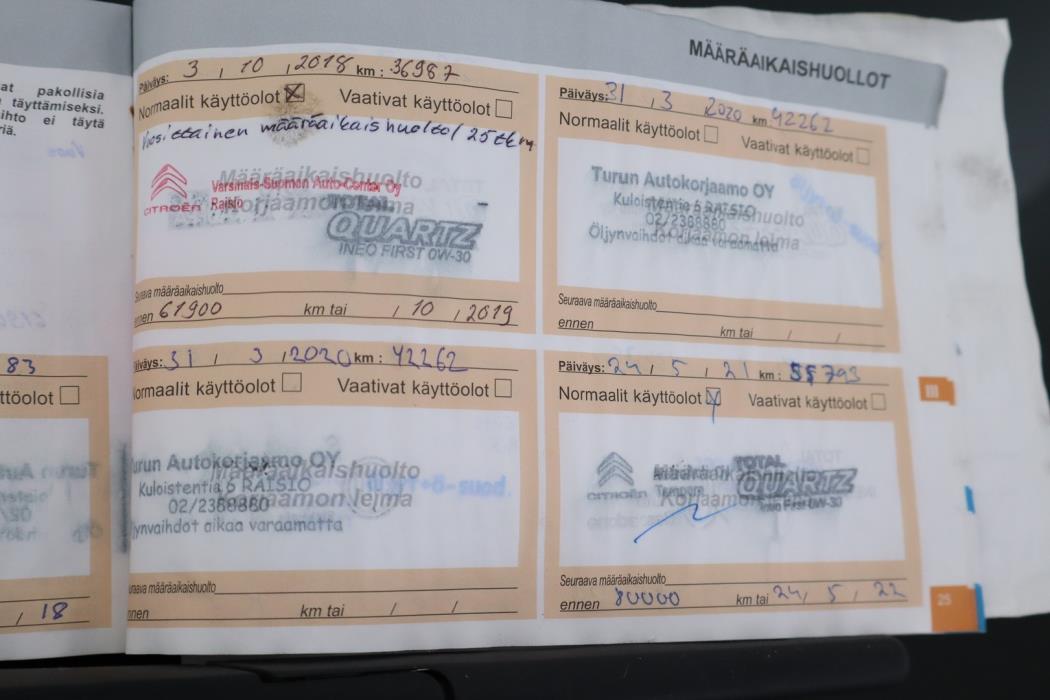 at pakollisia
täyttämiseksi.
ihto ei täytä
riä.
83
ttöolot
, 18
MÄÄRÄAIKAISHUOLLOT
Päiväys: 3 , 10 , 2018 km : 36987
Normaalit käyttöolot Vaativat käyttöolot
Vuosittainen määräaikaishuolto/ 25tkm
Määräaikaishuolto
Varsinais-Suomen Auto-Center Oy
CITROËN Raisio
Korjaamon leima
TOTAL
QUARTZ
INEO FIRST 0W-30
Seuraava määräaikaishuolto
ennen 61900 km tai , 10 , 2019
Päiväys: 31 , 3 2020 km 42262
Normaalit käyttöolot Vaativat käyttöolot
Turun Autokorjaamo OY
Kuloistentie 6 RAISIO
Määräaikaishuolto
02/2388860
Korjaamon leima
Öljynvaihdot aikaa varaamatta
Seuraava määräaikaishuolto
ennen km tai / /
Päiväys: 31 , 3 , 2020 km : 42262
Normaalit käyttöolot Vaativat käyttöolot
Turun Autokorjaamo OY
Määräaikaishuolto
Kuloistentie 6 RAISIO
Korjaamon leima
02/2388860
Öljynvaihdot aikaa varaamatta
uraava määräaikaishuolto
nnen km tai / /
Päiväys: 24 , 5 , 21 km : 55793
Normaalit käyttöolot Vaativat käyttöolot
CITROËN
Tampere
TOTAL
QUARTZ
Ineo First 0W-30
Seuraava määräaikaishuolto
ennen 80000 km tai 24 , 5 , 22
III
25